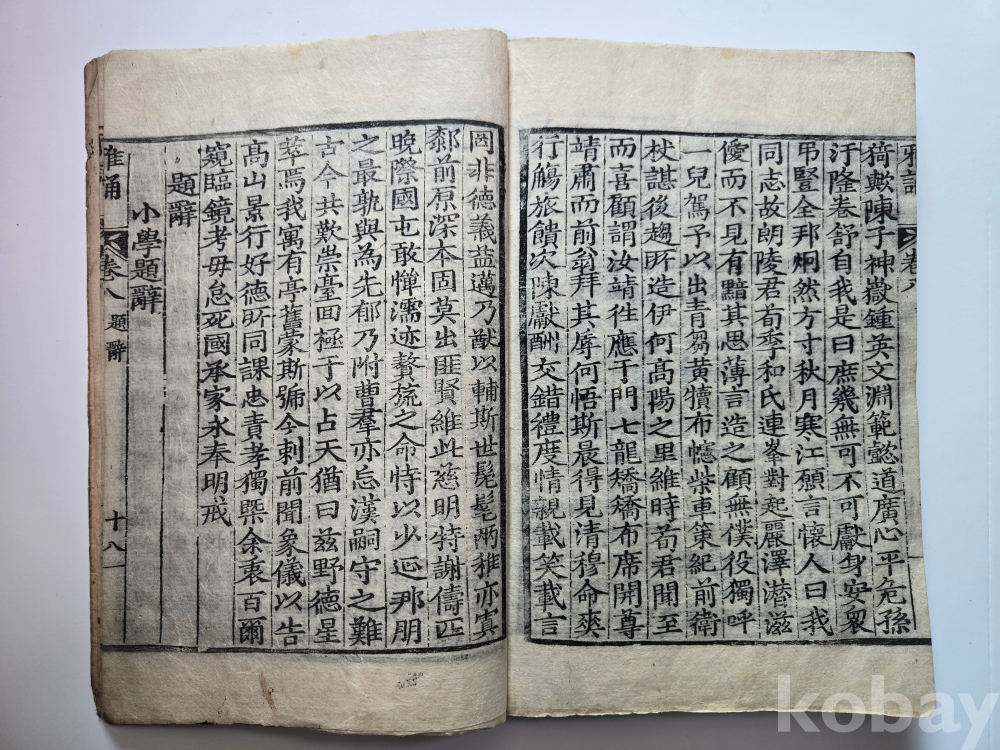 雅誦 卷八
猗歟陳子神嶽鍾英文淵範懿道廣心平危孫
汙隆卷舒自我是曰庶幾無可不可獻身安衆
弔豎全邦烱然方寸秋月寒江願言懷人曰我
同志故朗陵君荀季和氏連峯對起麗澤潛滋
僾而不見有黯其思薄言造之顧無僕役獨呼
一兒駕予以出青芻黃犢布幰柴車策紀前衛
杖諶後趨所造伊何高陽之里維時荀君聞至
而喜顧謂汝靖往應于門七龍矯矯布席開尊
靖肅而前翁拜其辱何悟斯晨得見清穆命爽
行觴旅饋次陳獻酬交錯禮度情親載笑載言
罔非德義益邁乃猷以輔斯世髧髦兩稚亦寘
郄前原深本固莫出匪賢維此慈明特謝儔匹
晚際國屯敢憚濡迹贅旒之命恃以少延那朋
之最孰與為先郁乃附曹羣亦忘漢嗣守之難
古今共歎崇臺回極于以占天猶曰兹野德星
萃焉我寓有亭舊蒙斯號今刺前聞象儀以告
高山景行好德所同課忠責孝獨槩余衷百爾
窺臨鏡考毋怠死國承家永奉明戒
題辭
小學題辭
雅誦 卷八 題辭 十八
kobay